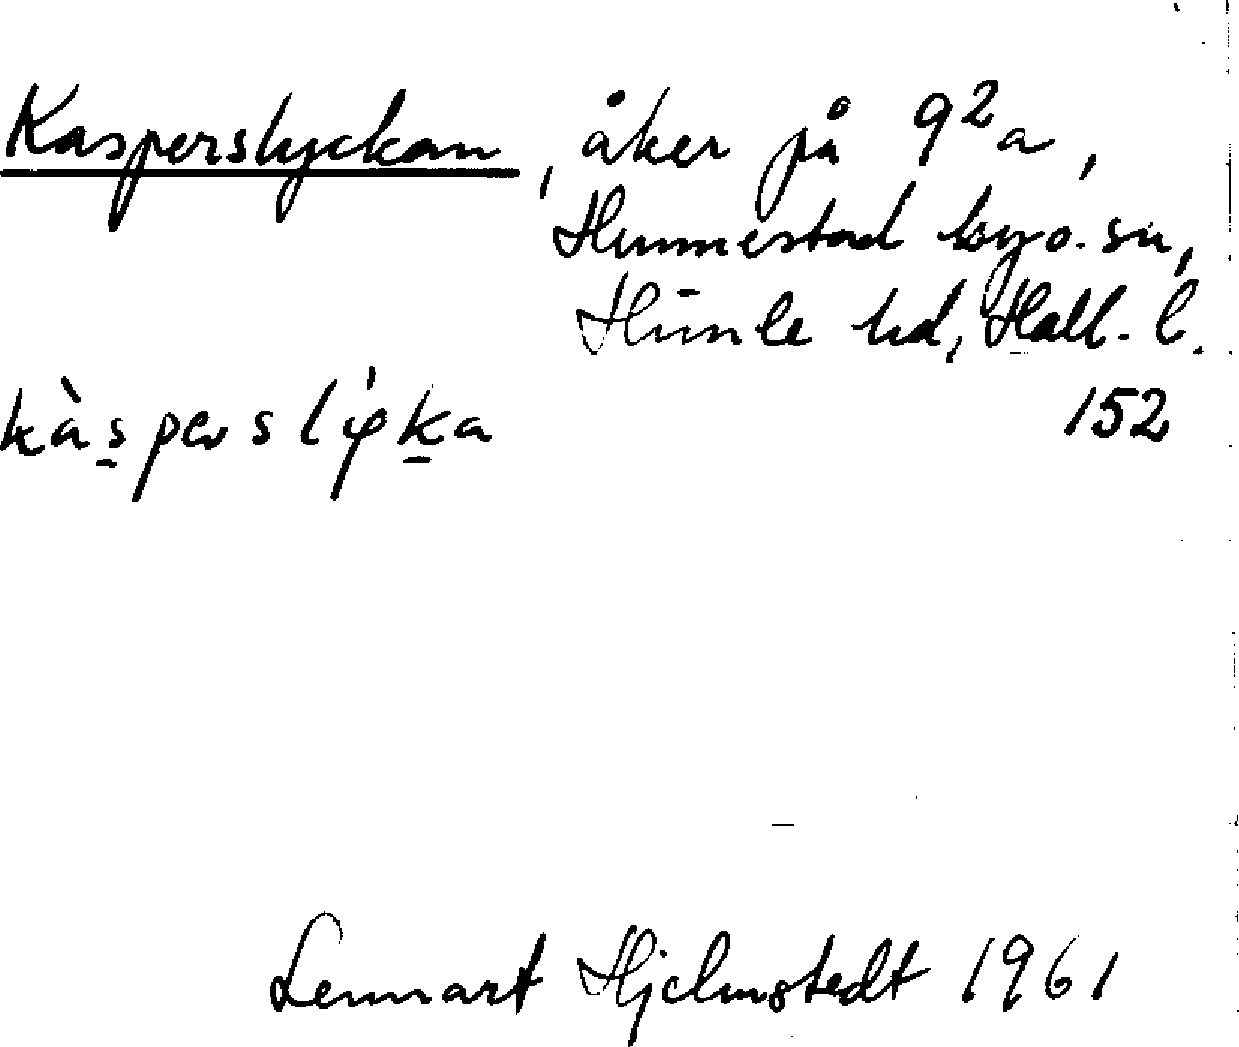 Kasperslyckan, åker på 9²a,
Hunnestad by o. sn,
Himle hd, Hall. l.
kàspərslýka 152
Lennart Hjelmstedt 1961